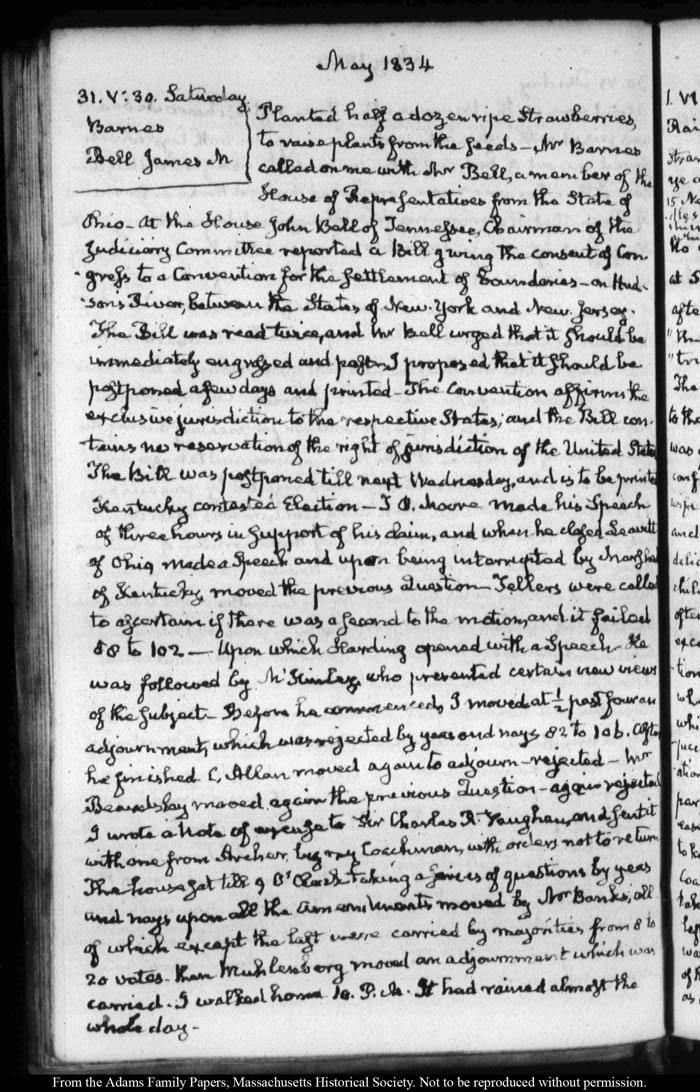 May 1834
31. V:30. Saturday.
Barnes
Bell James M
Planted half a dozen ripe Strawberries,
to raise plants from the seeds — Mr Barnes
called on me with Mr Bell, a member of the
House of Representatives from the State of
Ohio — At the House John Bell of Tennessee, Chairman of the
Judiciary Committee reported a Bill giving the consent of Con-
-gress to a Convention for the settlement of boundaries — on Hud-
-son's River, between the States of New-York and New-Jersey.
The Bill was read twice, and Mr Bell urged that it should be
immediately engrossed and pass. I proposed that it should be
postponed a few days and printed — The Convention affirms the
exclusive jurisdiction to the respective States; and the Bill con-
tains no reservation of the right of jurisdiction of the United States
The Bill was postponed till next Wednesday, and is to be printed
Kentucky contested Election — T. P. Moore made his Speech
of three hours in support of his claim, and when he closed Leavitt
of Ohio, made a Speech and upon being interrupted by Marshall
of Kentucky, moved the previous Question — Tellers were called
to ascertain if there was a second to the motion, and it failed
88 to 102 — Upon which Harding opened with a Speech — He
was followed by McKinley, who presented certain new views
of the subject — Before he commenced, I moved at ½ past four an
adjournment, which was rejected by yeas and nays 82 to 106. After
he finished C. Allan moved again to adjourn — rejected — Mr
Beardsley moved again the previous Question — again rejected
I wrote a Note of excuse to Sir Charles R. Vaughan, and sent it
with one from Archer, by my Coachman, with orders not to return
The house sat till 9 O'Clock taking a series of questions by yeas
and nays upon all the amendments moved by Mr Banks, all
of which except the last were carried by majorities from 8 to
20 votes — then Muhlenberg moved an adjournment which was
carried. I walked home 10. P.M. It had rained almost the
whole day —
From the Adams Family Papers, Massachusetts Historical Society. Not to be reproduced without permission.